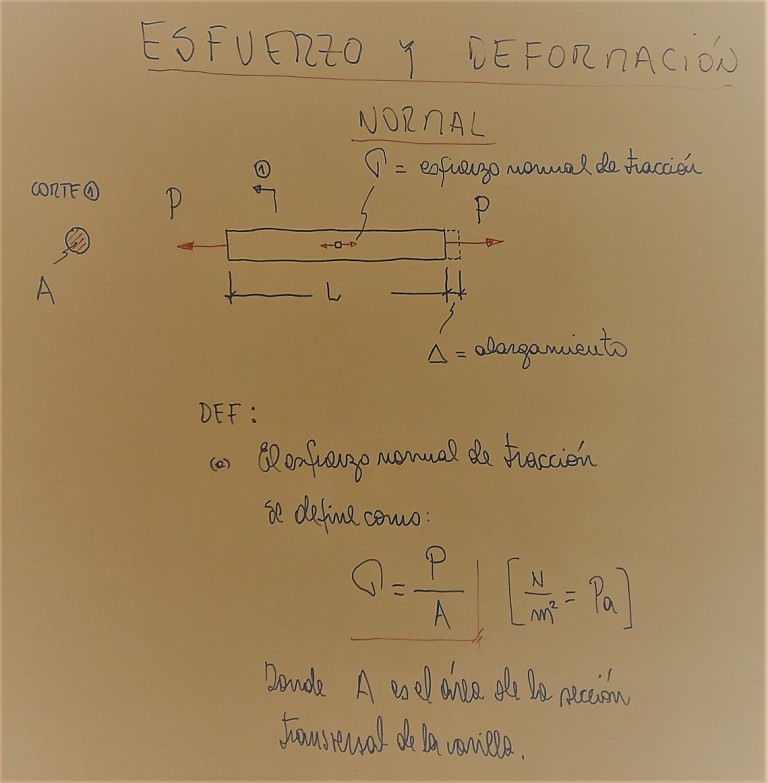 ESFUERZO Y DEFORMACIÓN
NORMAL
σ = esfuerzo normal de tracción
①
CORTE ①
P
P
A
L
Δ = alargamiento
DEF:
(a) El esfuerzo normal de tracción
se define como:
σ = P/A [N/m² = Pa]
Donde A es el área de la sección
transversal de la varilla.